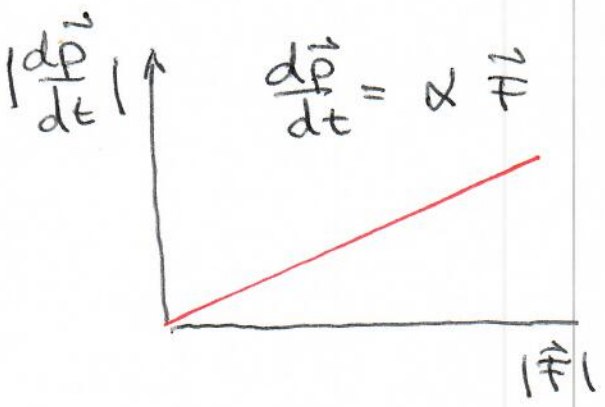 |dp⃗/dt|
dp⃗/dt = α F⃗
|F⃗|